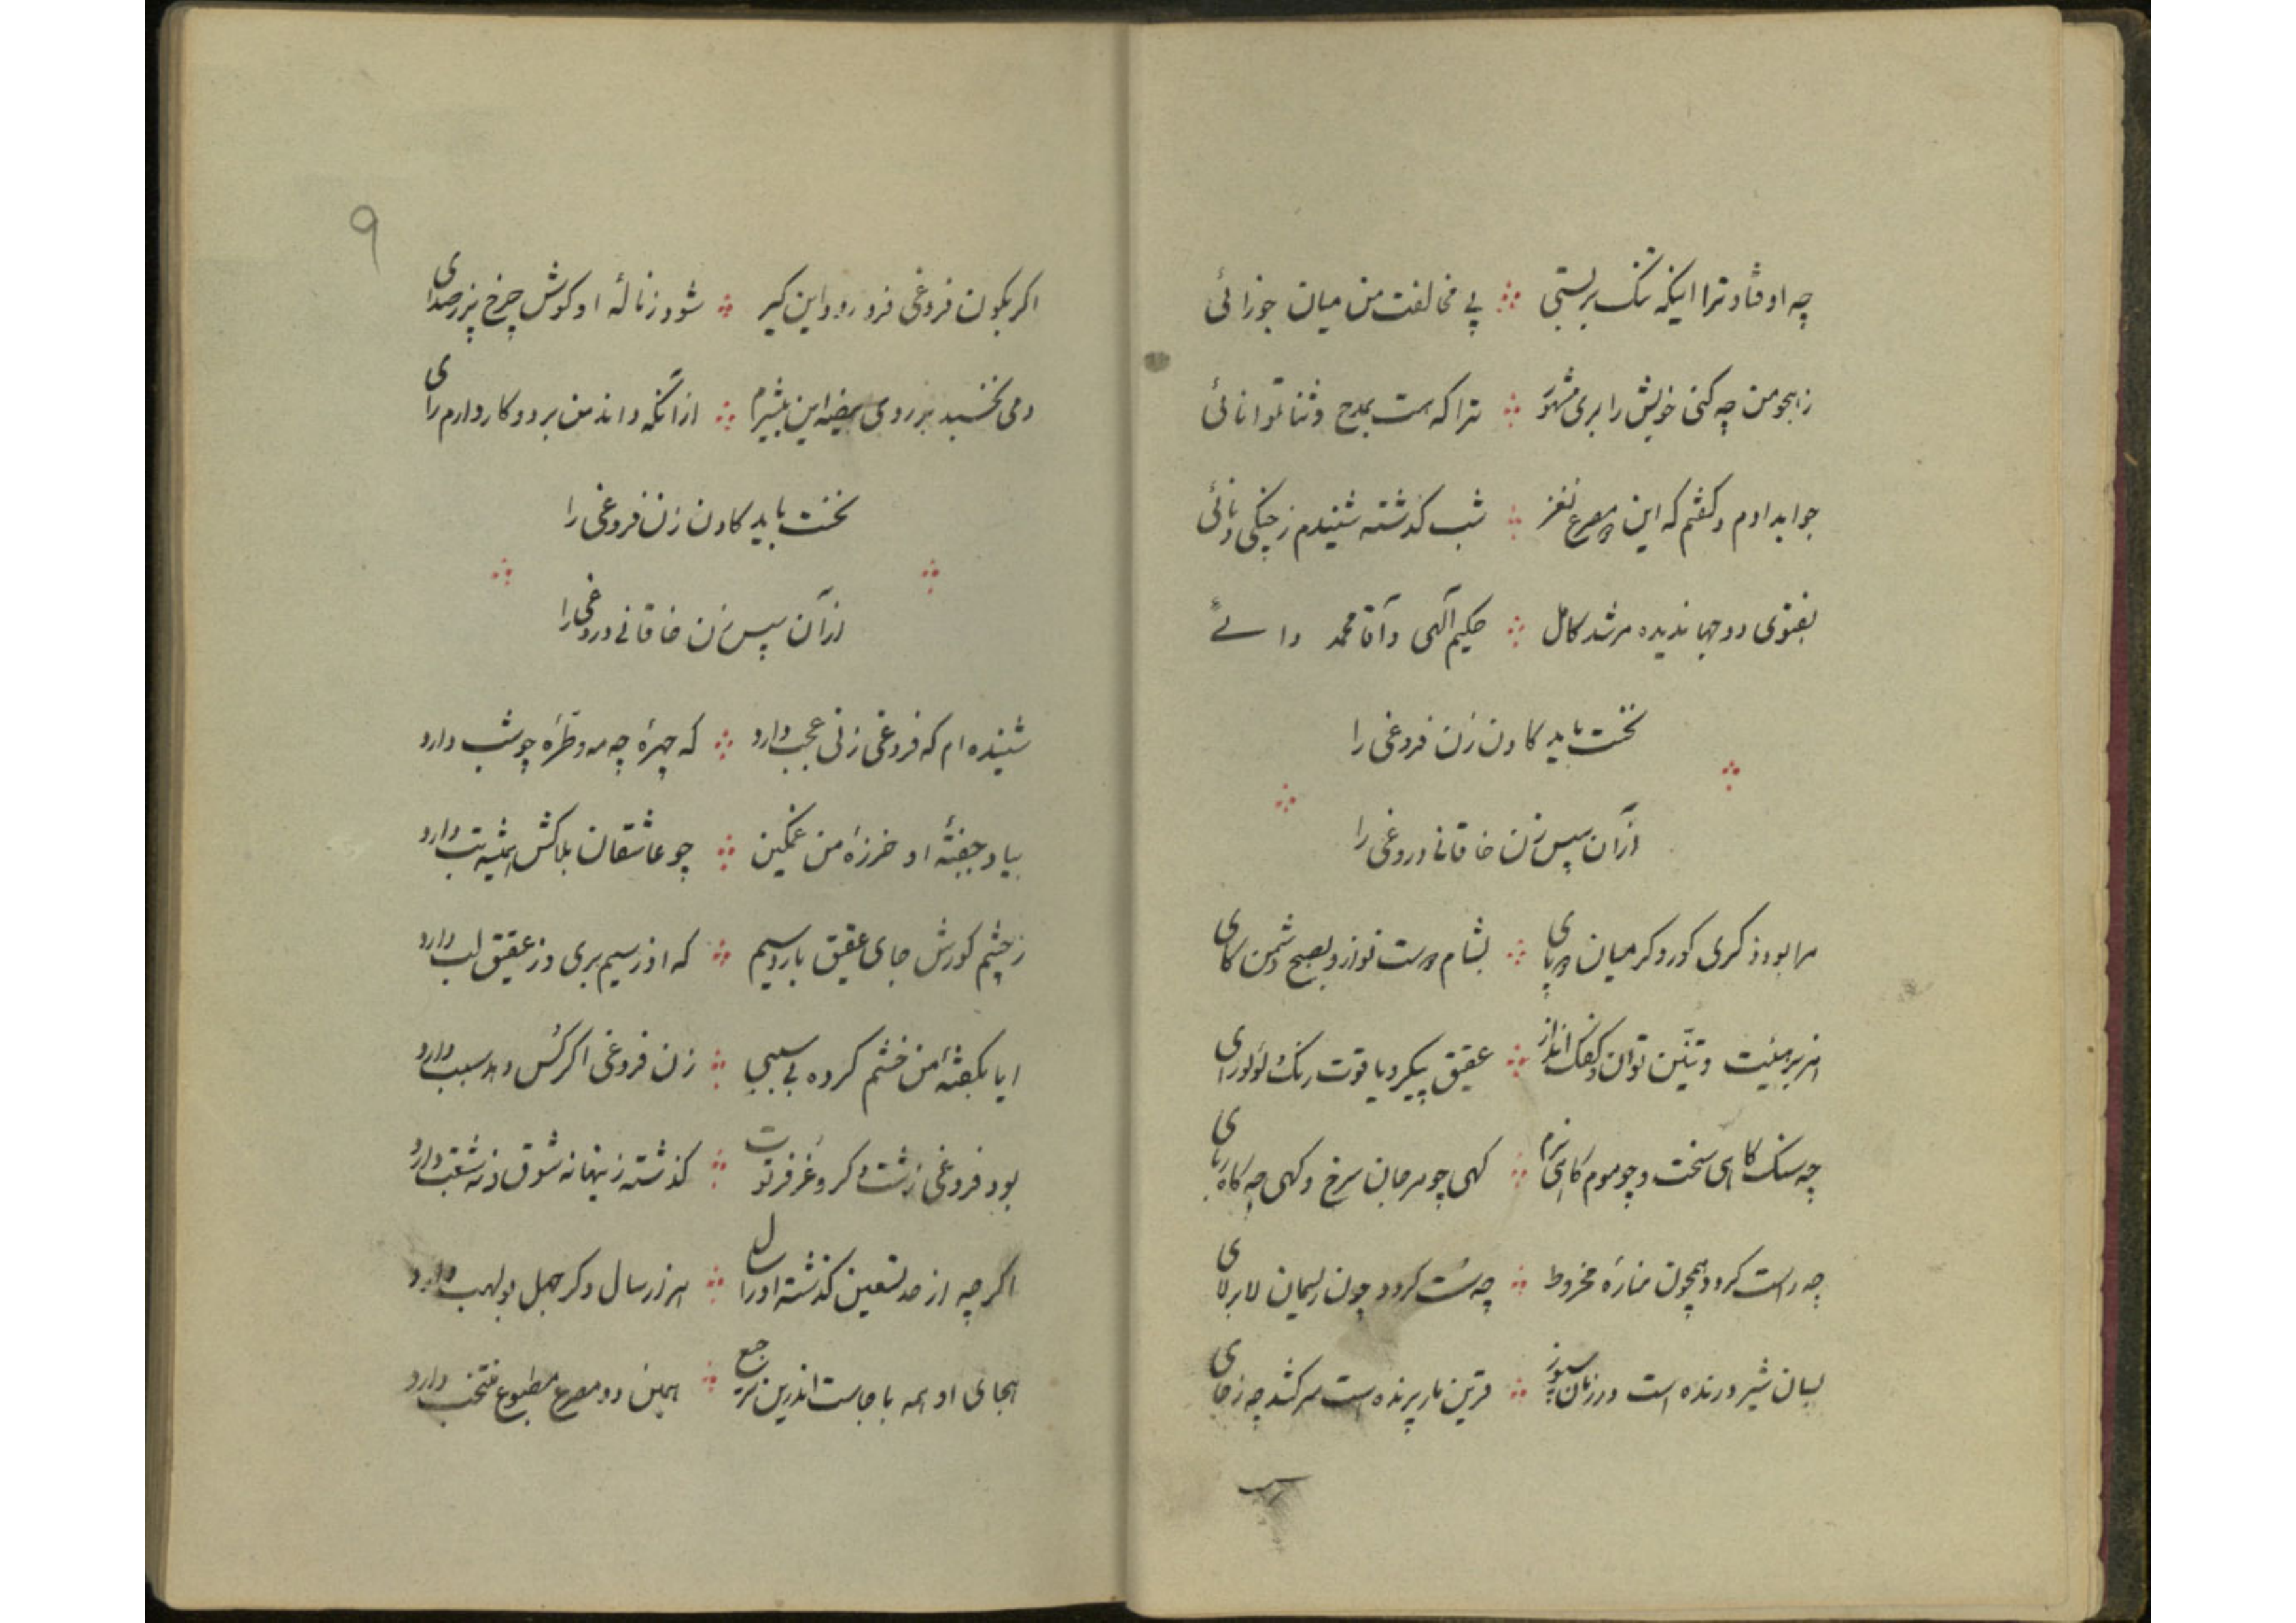 چه اوفتاد ترا اینکه تنک بربستی پی مخالفت من میان جوزائی
ز هجو من چه کنی خویش را بری مشهور ترا که هست بمدح و ثنا توانائی
جوابدادم و کفتم که این دو مصرع نغز شب کذشته شنیدم ز چنکی و نائی
بفتوی دو جهاندیده مرشد کامل حکیم آلهی و آقا محمد وائی
نخست باید کادن زن فروغی را
از آن سپس زن خاقانی دروغی را
مرا بود ذکری کور و کر میان دو پای بشام دوست نواز و بصبح دشمن کای
هزبر هیئت و تنین توان و کفک انداز عقیق پیکر و یاقوت رنک و لؤلؤ رای
چه سنک کاهی سخت و چو موم کاهی نرم کهی چو مرجان سرخ و کهی چه کاه ربای
چه راست کردد همچون مناره مخروط چه سست کردد چون ریسمان لابرلای
بسان شیر درنده است در زمان سپوز قرین مار پرنده است سر کشد چه ز جای
اکر بکون فروغی فرو رود این کیر شود ز ناله او کوش چرخ پر ز صدای
دمی نخسبد بر روی بیضه این بیشرم از آنکه داند من بر دو کار دارم رای
نخست باید کادن زن فروغی را
از آن سپس زن خاقانی دروغی را
شنیده ام که فروغی زنی عجب دارد که چهره چه مه و طره چو شب دارد
بیاد جفته او خرزه من غمکین چو عاشقان بلاکش همیشه تب دارد
ز چشم کورش جای عقیق بارد سیم که او ز سیم بری وز عقیق لب دارد
ایا بکفته من خشم کرده بی سببی زن فروغی اکر کس دهد سبب دارد
بود فروغی زشت و کر و غر فرتوت کذشته زینها نه شوق و نه شغب دارد
اکرچه از حد تسعین کذشته او را سال هنر ز سال و کر جهل بولهب دارد
هجای او همه با جاست اندرین ترجیع همین دو مصرع مطبوع منتخب دارد
۹